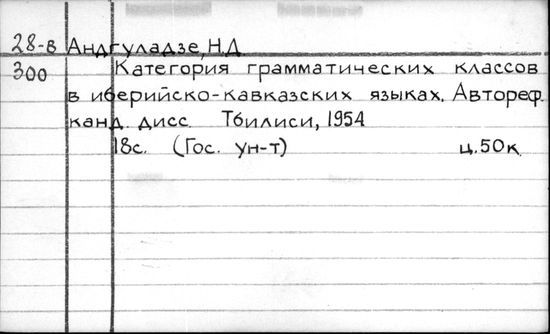 28-в Андгуладзе, Н.Д
300 Категория грамматических классов
в иберийско-кавказских языках. Автореф.
канд. дисс. Тбилиси, 1954
18с. (Гос. ун-т) ц.50к.